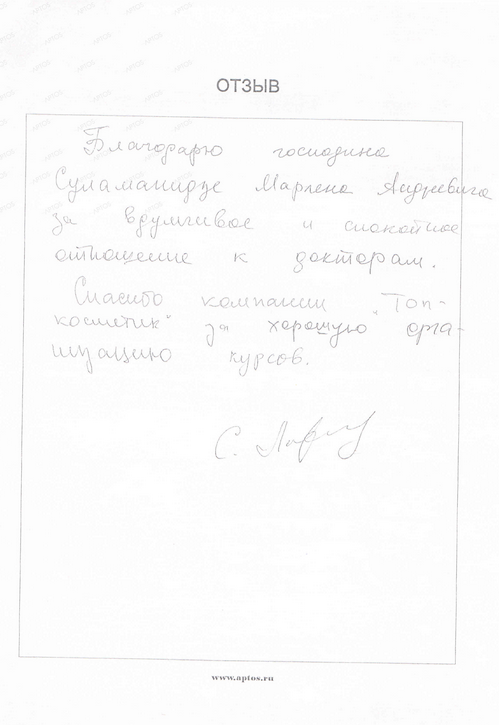 ОТЗЫВ
Благодарю господина
Суламанидзе Марлена Андреевича
за вдумчивое и спокойное
отношение к докторам.
Спасибо компании „Топ-
косметик" за хорошую орга-
низацию курсов.
С.
www.aptos.ru